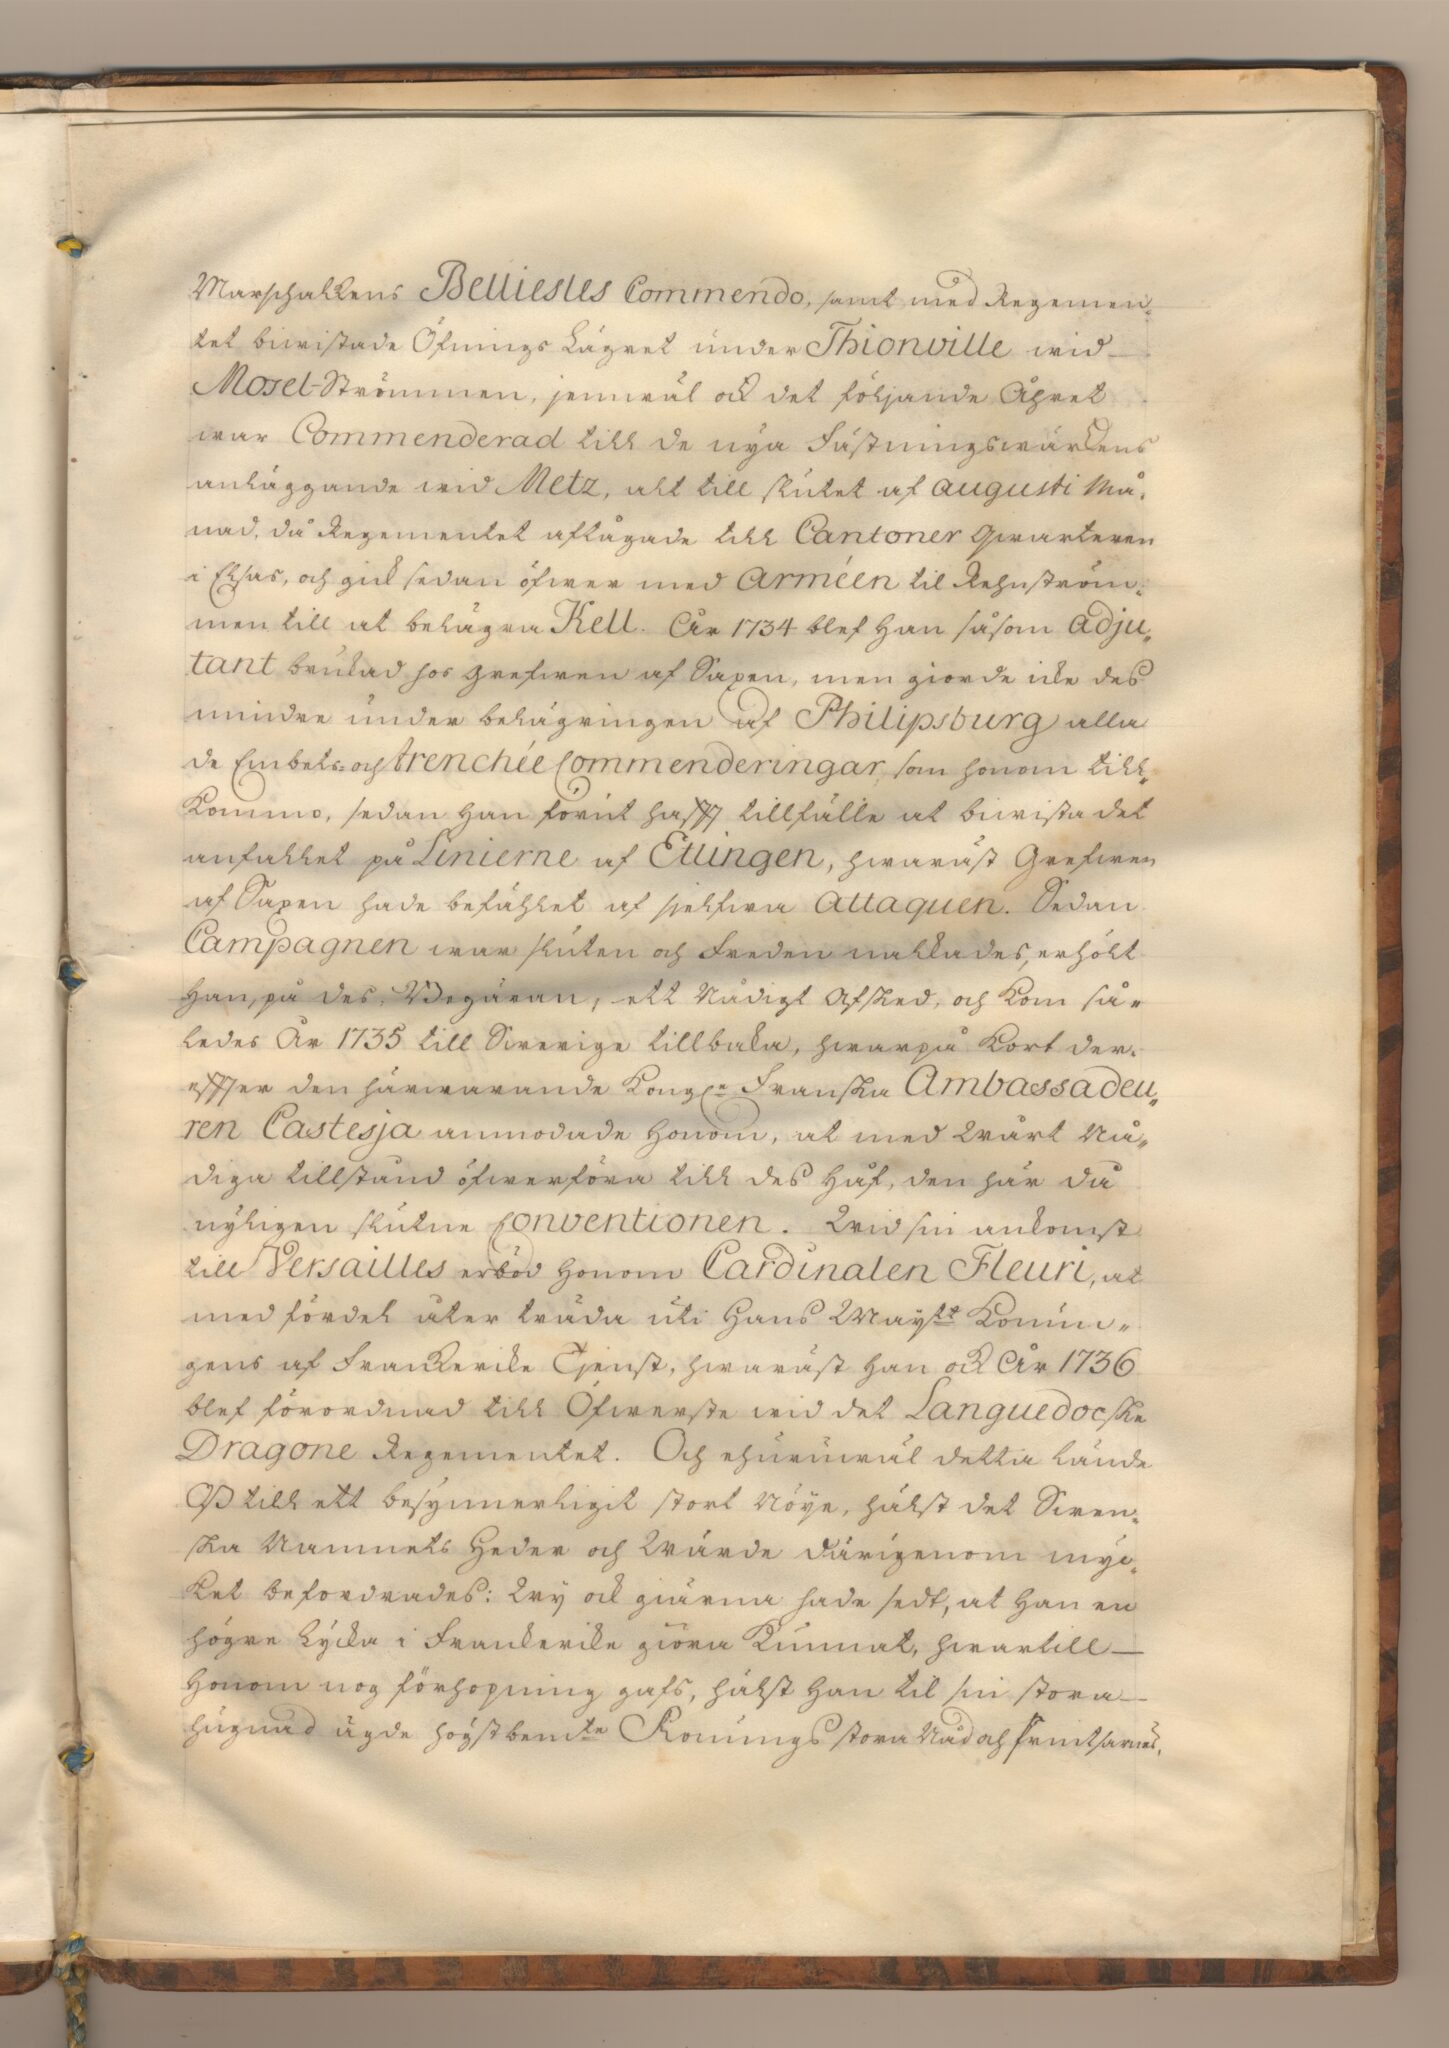 Marschallens Bellisles Commendo, samt med Regemen-
tet biwistade Öfnings Lägret under Thionville wid
Mosel-Strömmen, jemwäl ock det följande Åhret
war Commenderad till de nya Fästningswärckens
anläggande wid Metz, alt till slutet af Augusti Må-
nad, då Regementet aftågade till Cantoner Qwarteren
i Elsas, och gick sedan öfwer med Arméen til Rehnström-
men till at belägra Kell. Åhr 1734 blef Han såsom Adju-
tant brukad hos Grefwen af Saxen, men giorde icke des
mindre under belägringen af Philipsburg alla
de Embets- och trenchée Commenderingar, som honom till-
kommo, sedan Han förut hafft tillfälle at biwista det
anfallet på Linierne af Ettingen, hwaräst Grefwen
af Saxen hade befählet af sjelfwa Attaquen. Sedan
Campagnen war sluten och Freden nalkades, erhölt
Han, på des Begäran, ett Nådigt Afsked, och kom så-
ledes År 1735 till Swerige tillbaka, hwarpå kort der-
effter den härwarande Kongl:e Franska Ambassadeu-
ren Castesja anmodade Honom, at med Wårt Nå-
diga tillstånd öfwerföra till des Håf, den här då
nyligen slutne Conventionen. Wid sin ankomst
till Versailles erböd Honom Cardinalen Fleuri, at
med fördel åter träda uti Hans May:tt Konun-
gens af Franckerike Tjenst, hwaräst Han ock År 1736
blef förordnad till Öfwerste wid det Languedocske
Dragone Regementet. Och ehuruwäl detta lände
Oß till ett besynnerligit stort Nöye, hälst det Swen-
ska Namnets Heder och Wärde därigenom myc-
ket befordrades: Wy ock giärna hade sedt, at Han en
högre Lycka i Franckerike giöra kunnat, hwartill
Honom nog förhopning gafs, hälst Han til sin stora
hugnad ägde högstbem:te Konungs stora Nåd och